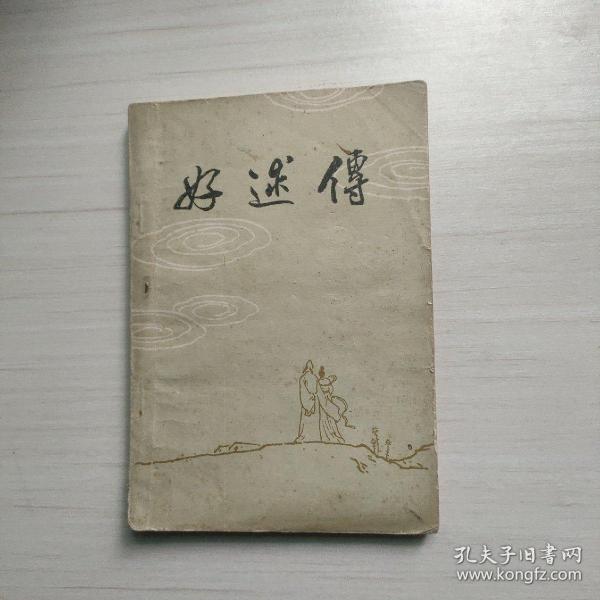 好逑傳
孔夫子旧書网
www.kongfz.com